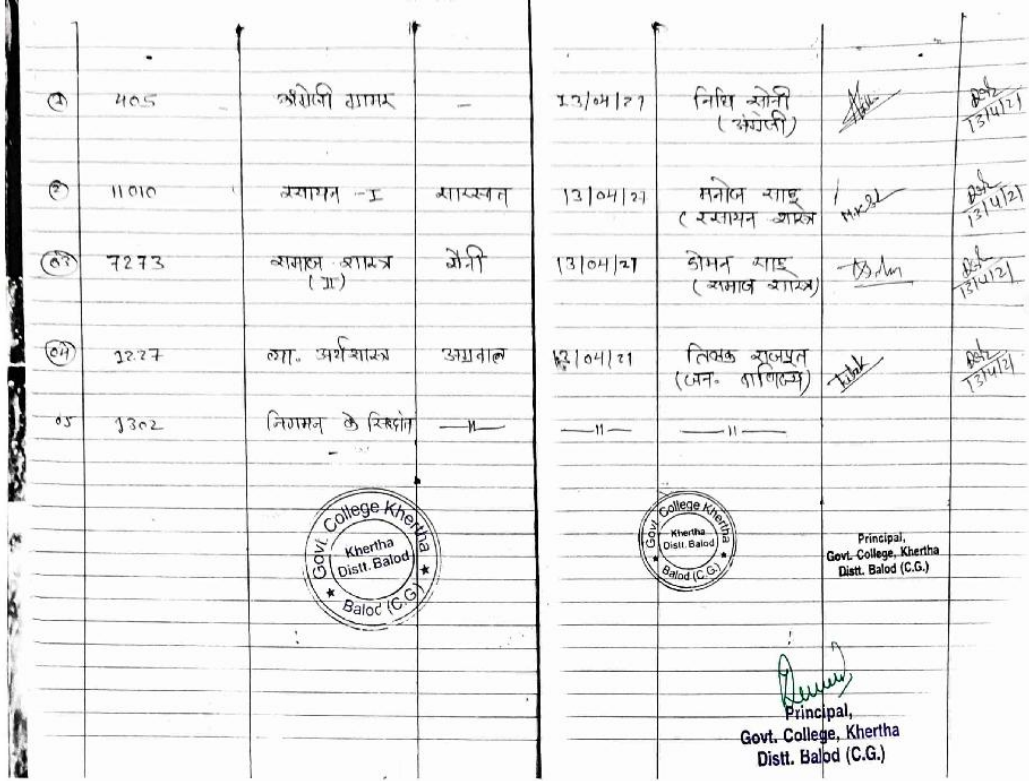 ① 405 अंग्रेजी ग्रामर - 13/04/21 निधि सोनी
(अंग्रेजी)
13/4/21
② 11010 रसायन - I सारस्वत 13/04/21 मनोज साहू
(रसायन शास्त्र
M.K.
13/4/21
03 7273 समाज शास्त्र सैनी 13/04/21 डोमन साहू
(II) (समाज शास्त्र)
13/4/21
04 1227 व्या. अर्थशास्त्र अग्रवाल 13/04/21 तिलक राजपूत
(जन. वाणिज्य)
Tilak
13/4/21
05 1302 निगमन के सिद्धांत —॥— —॥— —॥—
Govt. College Khertha
Khertha
Distt. Balod
Balod (C.G.)
Govt. College Khertha
Khertha
Distt. Balod
Balod (C.G.)
Principal,
Govt. College, Khertha
Distt. Balod (C.G.)
Principal,
Govt. College, Khertha
Distt. Balod (C.G.)